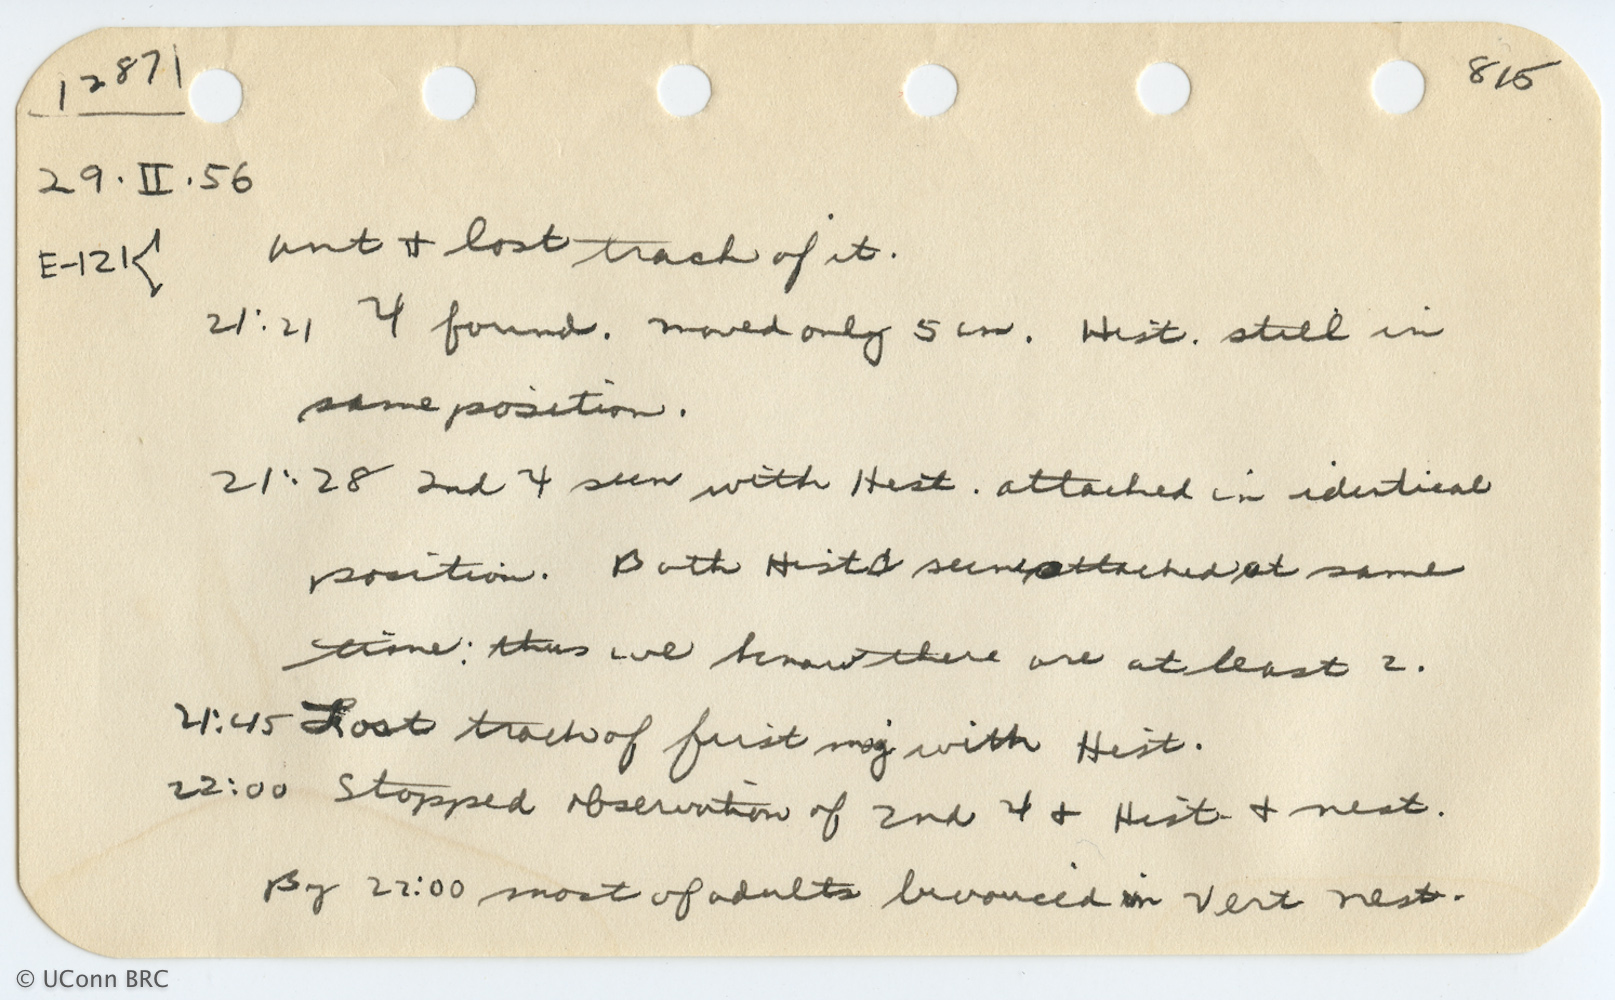 12871
815
29.II.56
E-121
ant & lost track of it.
21:21 4 found. moved only 5 cm. Hist. still in
same position.
21:28 2nd 4 seen with Hist. attached in identical
position. Both Hist seen attached at same
time: thus we know there are at least 2.
21:45 Lost track of first maj with Hist.
22:00 Stopped observation of 2nd 4 & Hist. & nest.
By 22:00 most of adults bivouaced in Vert nest.
© UConn BRC